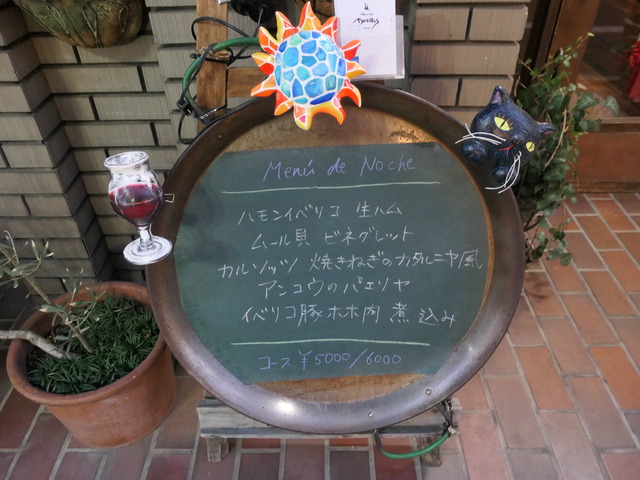 Menú de Noche
ハモンイベリコ 生ハム
ムール貝 ビネグレット
カルソッツ 焼きねぎのカタルーニャ風
アンコウのパエリヤ
イベリコ豚ホホ肉 煮込み
コース ¥5000/6000